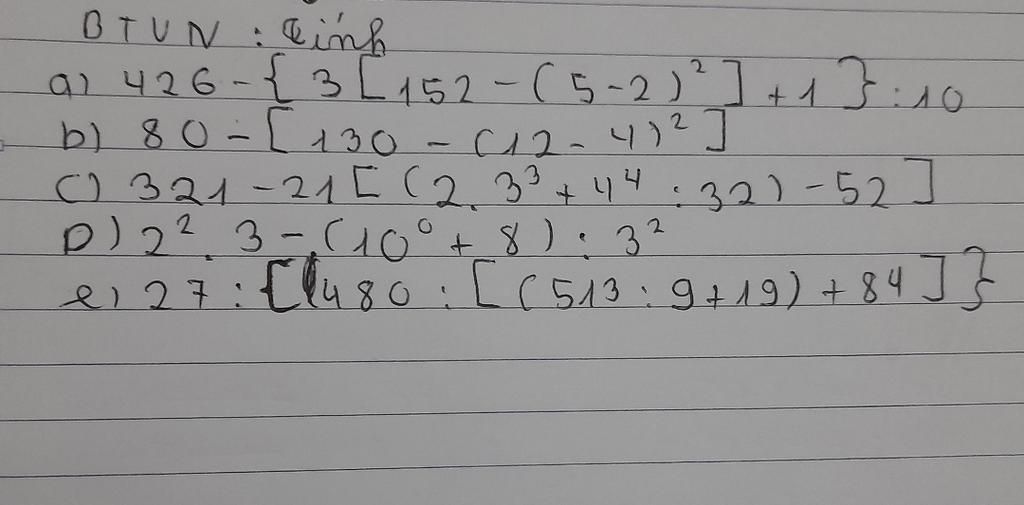 BTVN : Tính
a) 426 - { 3 [ 152 - ( 5 - 2 )² ] + 1 } : 10
b) 80 - [ 130 - ( 12 - 4 )² ]
c) 321 - 21 [ ( 2 . 3³ + 4⁴ : 32 ) - 52 ]
D) 2² . 3 - ( 10⁰ + 8 ) : 3²
e) 27 : { 480 : [ ( 513 : 9 + 19 ) + 84 ] }